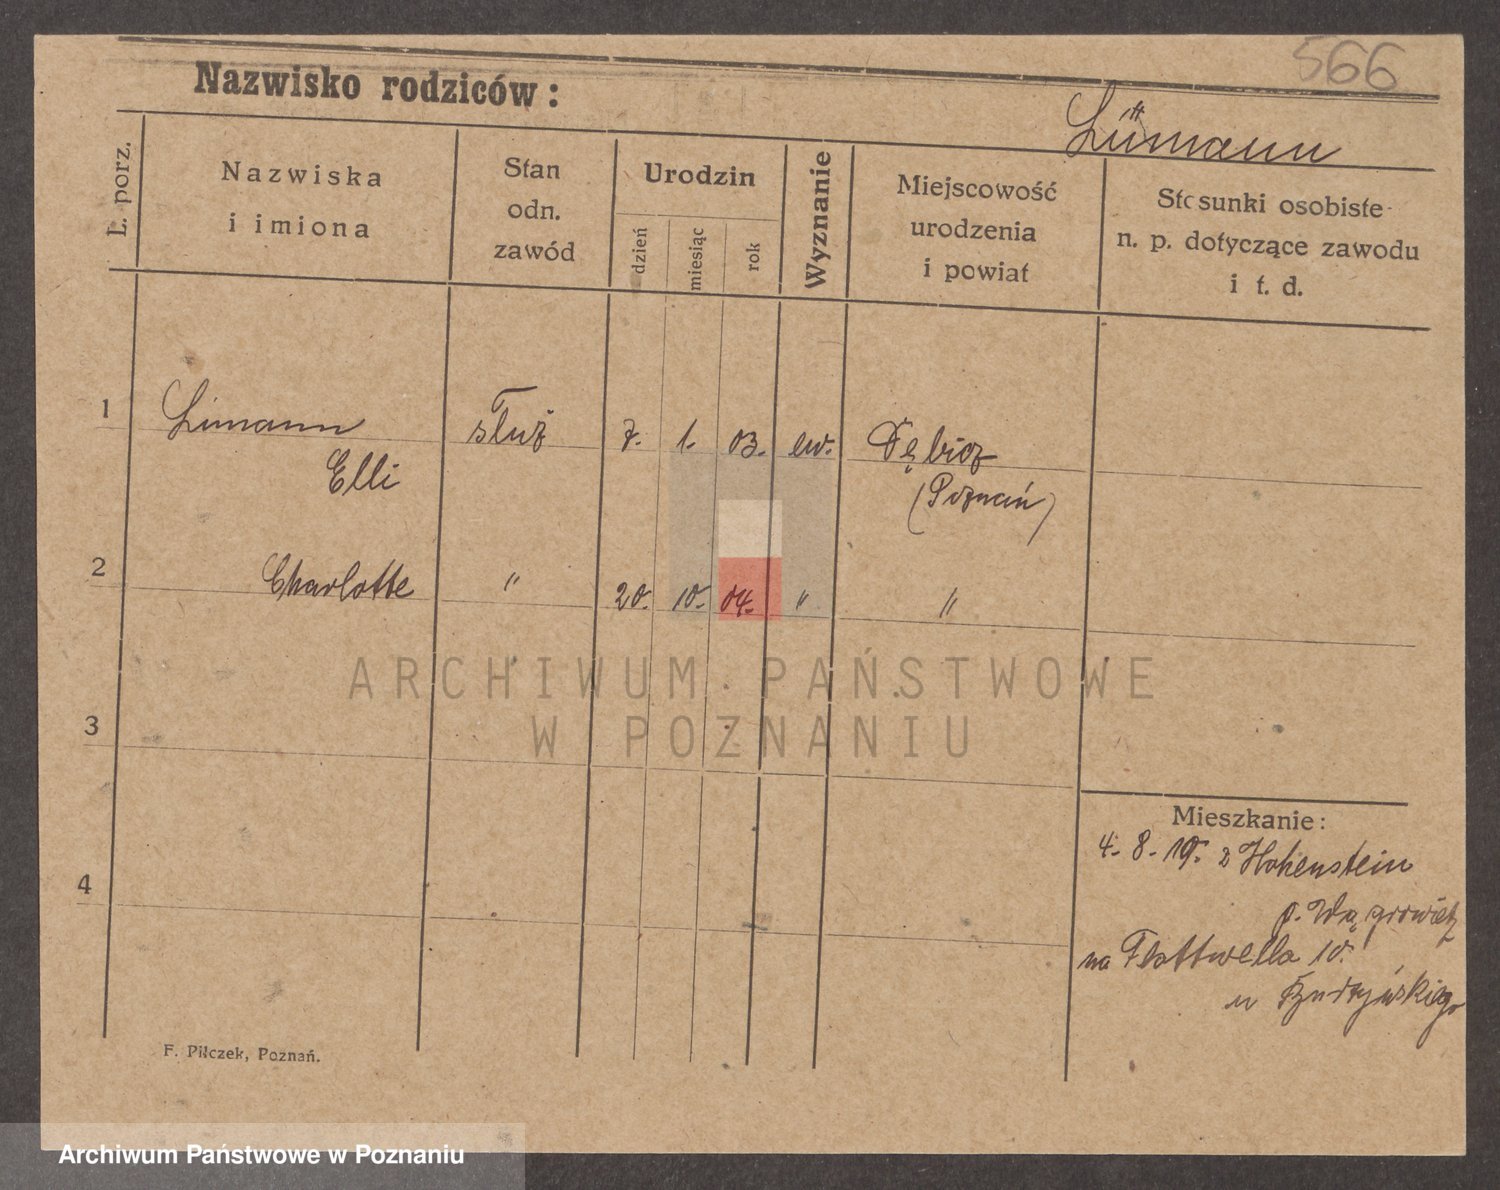 566
Nazwisko rodziców:
Lümann
L. porz.
Nazwiska
i imiona
Stan
odn.
zawód
Urodzin
dzień
miesiąc
rok
Wyznanie
Miejscowość
urodzenia
i powiat
Stosunki osobiste
n. p. dotyczące zawodu
i t. d.
1 Limann służ 7. 1. 03. ew.
Elli (Poznań)
2 Charlotte " 20. 10. 04. " "
ARCHIWUM PAŃSTWOWE
W POZNANIU
3
Mieszkanie:
4. 8. 19. z Hohenstein
p. Wągrowietz
4
na Flottwella 10.
u
F. Pilczek, Poznań.
Archiwum Państwowe w Poznaniu